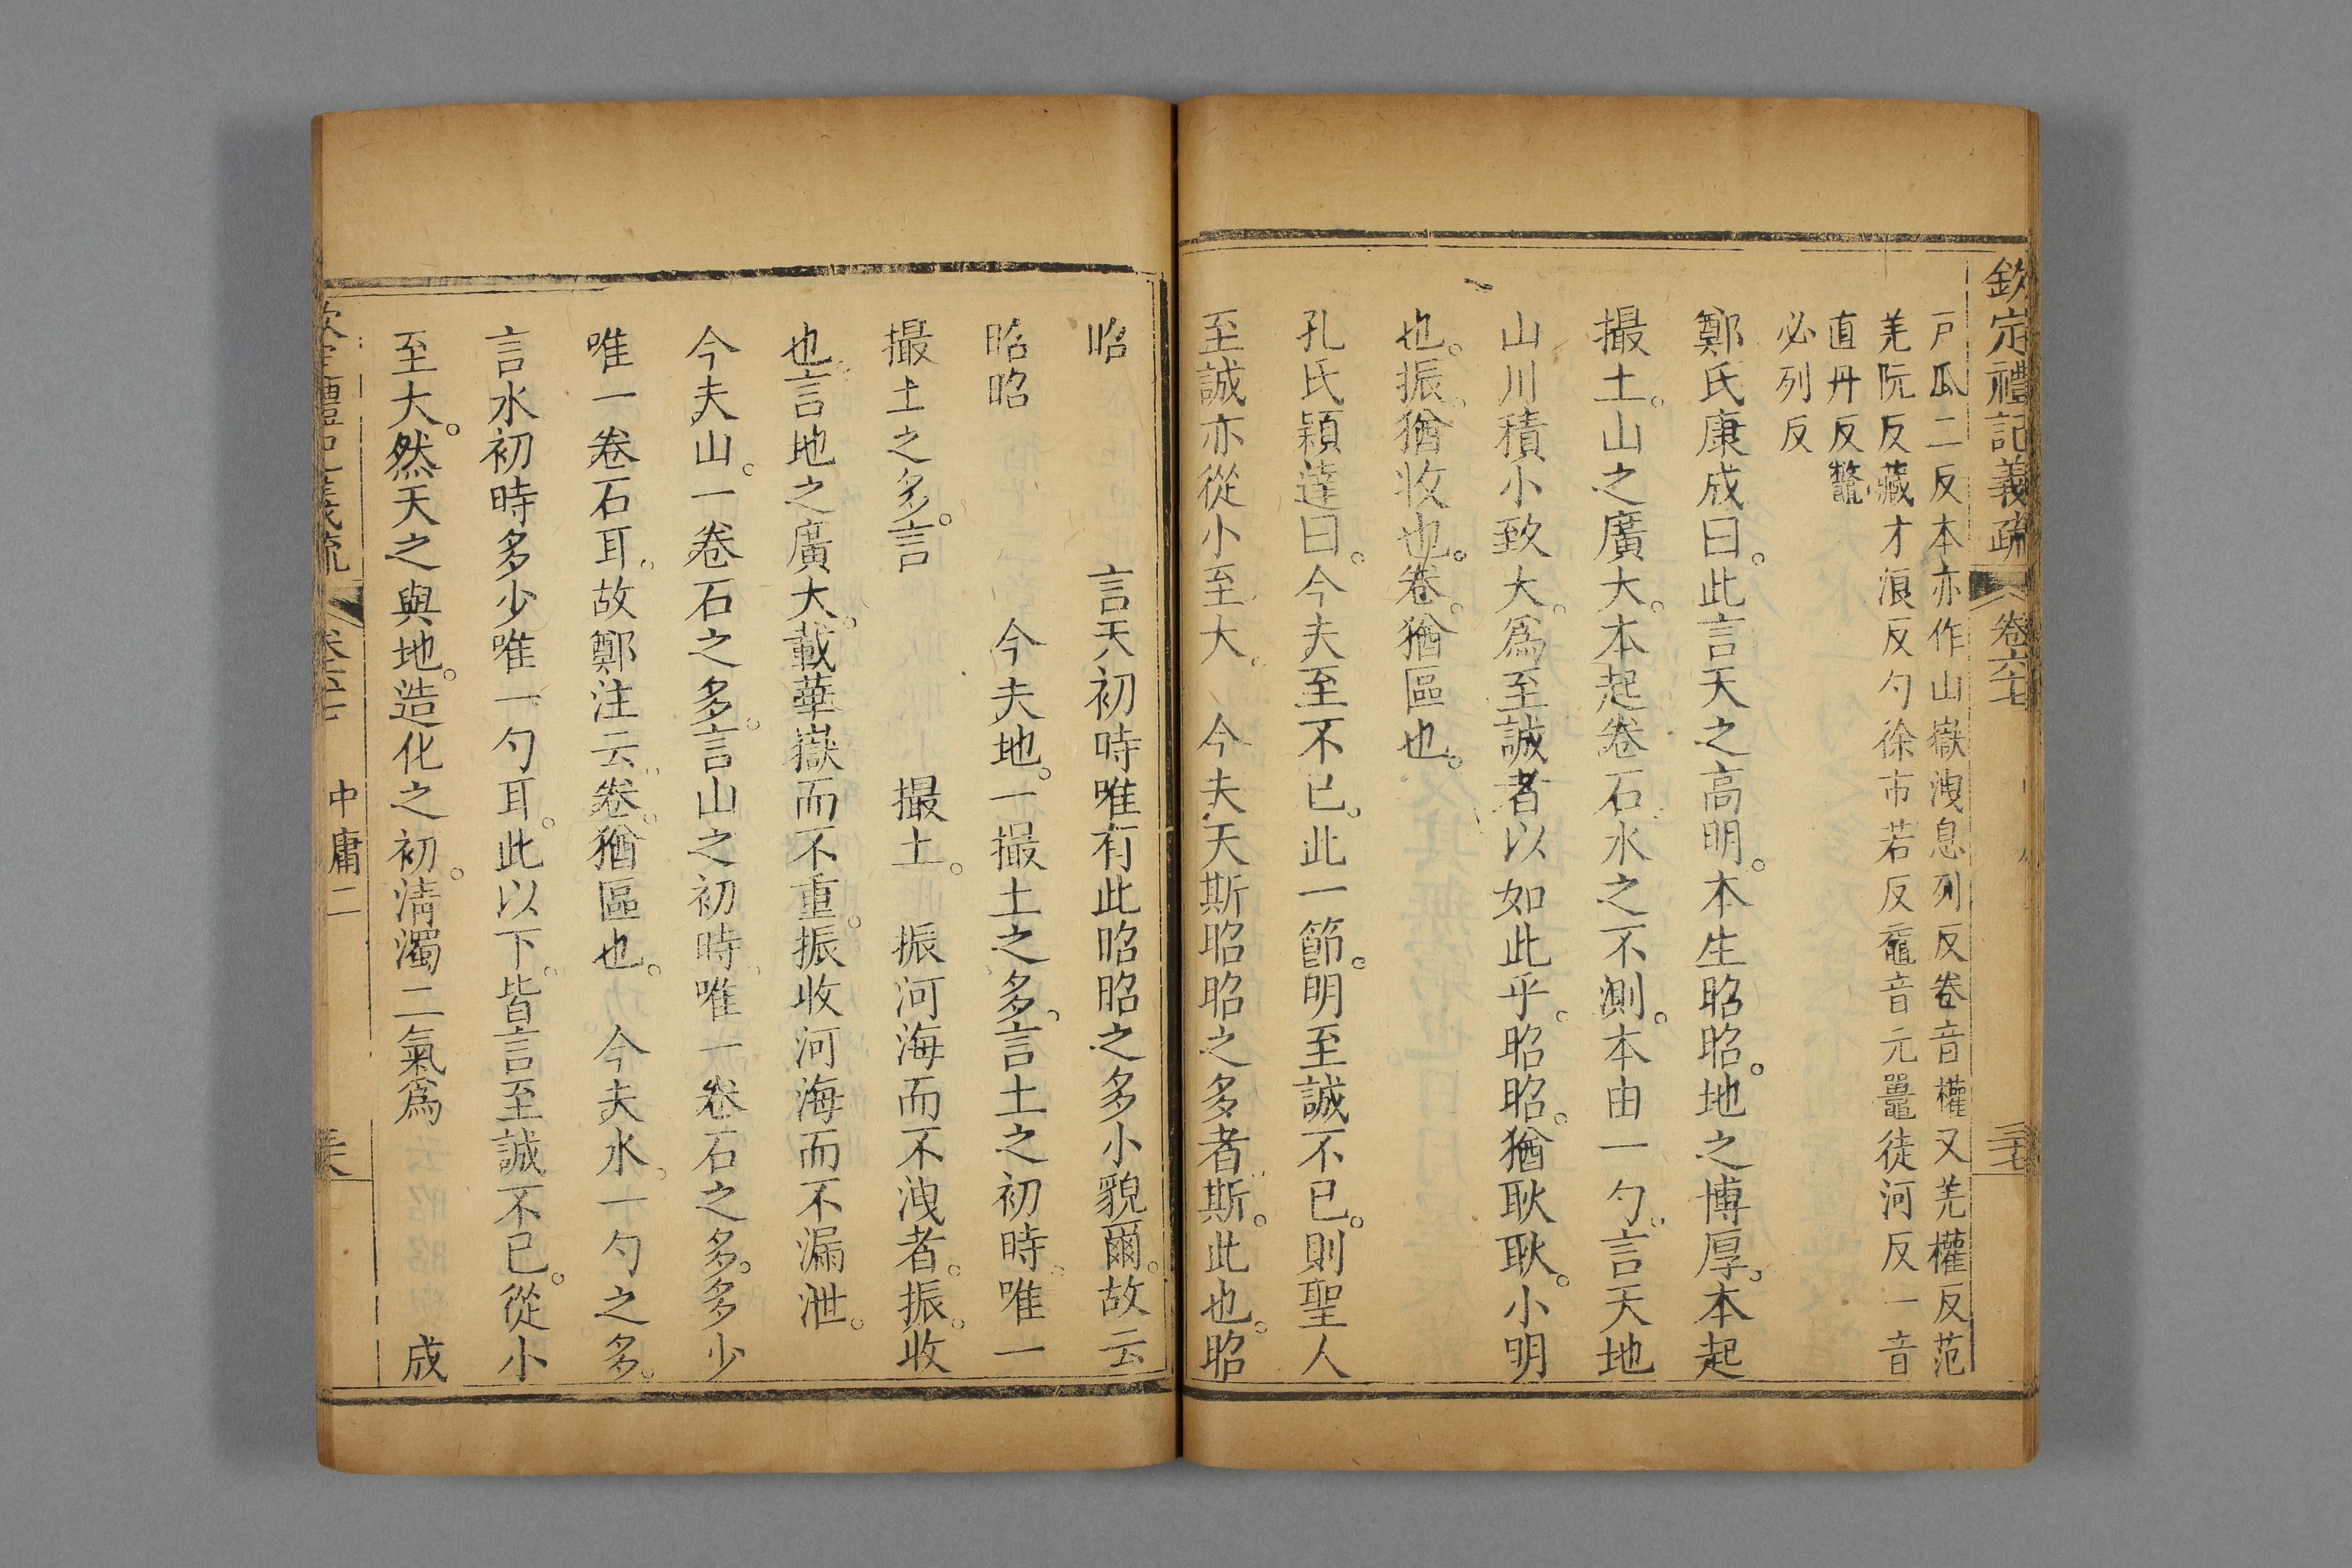 欽定禮記義疏 卷六十七
戸瓜二反本亦作山嶽洩息列反卷音權又羌權反范
羌阮反藏才浪反勺徐市若反黿音元鼉徒河反一音
直丹反鼈
必列反
鄭氏康成曰此言天之高明本生昭昭地之博厚本起
撮土山之廣大本起卷石水之不測本由一勺言天地
山川積小致大爲至誠者以如此乎昭昭猶耿耿小明
也振猶收也卷猶區也
孔氏穎達曰今夫至不已此一節明至誠不已則聖人
至誠亦從小至大 今夫天斯昭昭之多者斯此也昭
昭 言天初時唯有此昭昭之多小貌爾故云
昭昭 今夫地一撮土之多言土之初時唯一
撮土之多言 撮土 振河海而不洩者振收
也言地之廣大載華嶽而不重振收河海而不漏泄
今夫山一卷石之多言山之初時唯一卷石之多多少
唯一卷石耳故鄭注云卷猶區也 今夫水一勺之多
言水初時多少唯一勺耳此以下皆言至誠不已從小
至大然天之與地造化之初淸濁二氣爲 成
中庸二